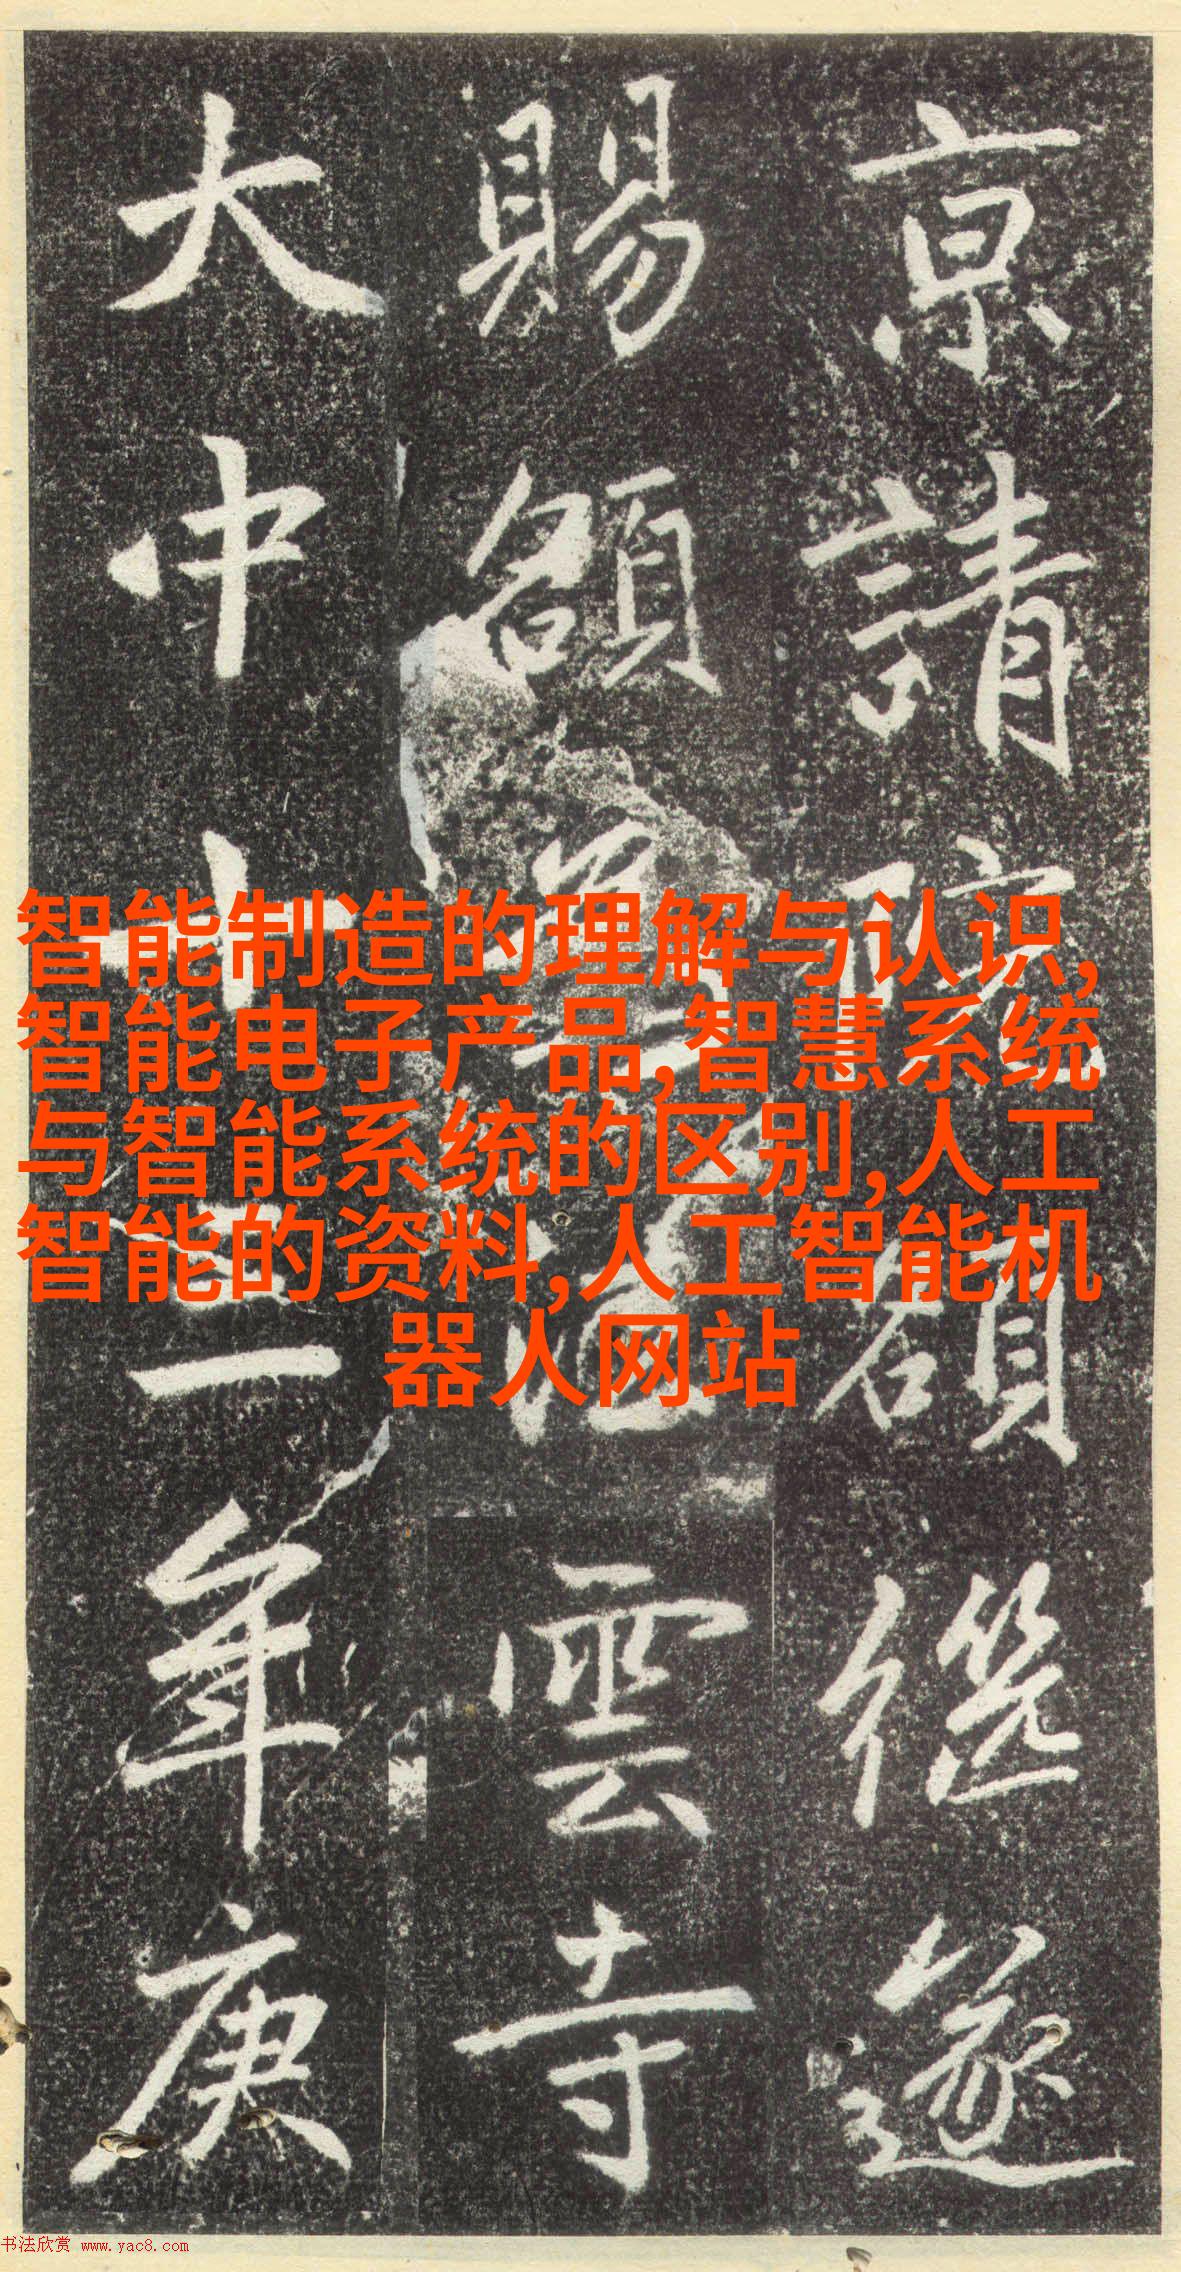 京請院額遂
賜額雲寺
大中十年庚
智能制造的理解与认识,
智能电子产品,智慧系统
与智能系统的区别,人工
智能的资料,人工智能机
器人网站
书法欣赏 www.yac8.com